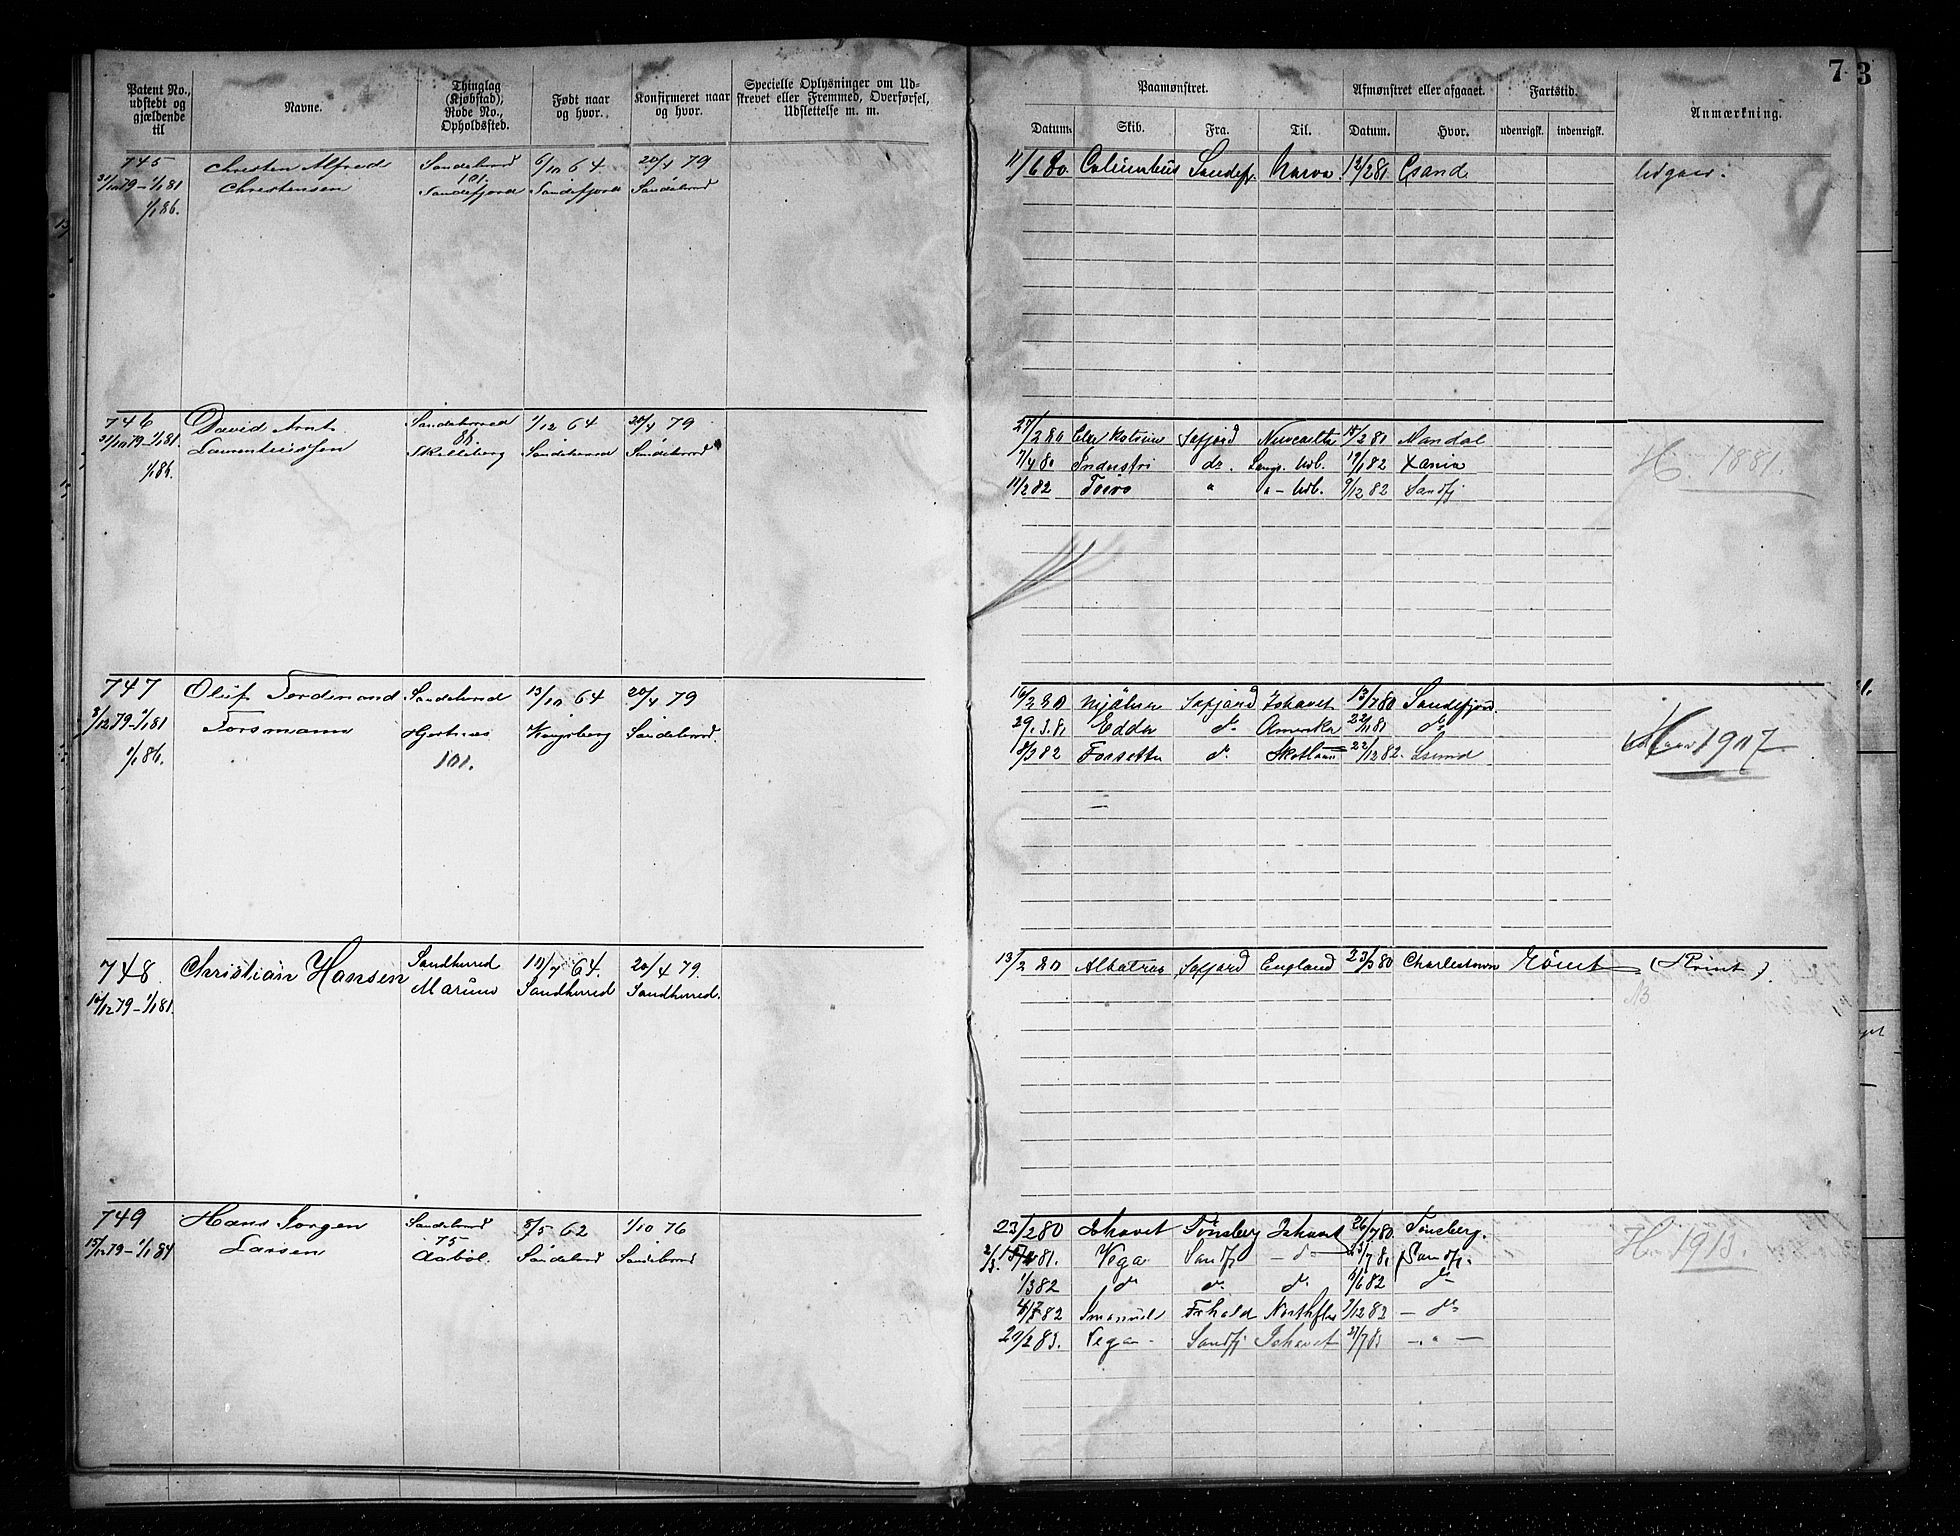 Patent No., udstedt og gjældende til
Navne.
Thinglag (Kjøbstad), Rode No., Opholdssted.
Født naar og hvor.
Konfirmeret naar og hvor.
Specielle Oplysninger om Udskrevet eller Fremmed, Overførsel, Udslettelse m. m.
Paamønstret.
Afmønstret eller afgaaet.
Fartstid.
Anmærkning.
73
Datum. Skib. Fra. Til. Datum. Hvor. udenrigsk. indenrigsk.
745 Christen Alfred Sandeherred 6/10 64 20/4 79
31/10 79 – 1/1 81 Christensen 101. Sandefjord Sandefjord Sandeherred
1/1 86.
11/6 80 Columbus Sandefj. Narva 12/2 81 Csand Udgaar.
746 David Arnt Sandeherred 1/12 64 20/4 79
31/10 79 – 1/1 81 Laurentiussen Skelleberg Sandeherred Sandeherred
1/1 86.
27/2 80 Sefjord Newcastle 15/2 81 Mandal
7/4 80 Industri do. Udl. 19/1 82 Xania
11/2 82 " " – Udl. 9/12 82 Sandfj
H. 1881.
747 Oluf Ferdinand Sandeherred 13/10 64 20/4 79
8/12 79 – 1/1 81 Forsmann Hjertnes Kongsberg Sandeherred.
1/1 86. 101.
16/2 80 Mjølner Sefjord Ishavet 13/7 80 Sandefjord.
29.3.81 Edda do Amerika 22/11 81 do
8/3 82 Forsette do Skotland 22/12 82. Lsund
1907
748 Christian Hansen Sandherred 10/7 64. 20/4 79.
16/12 79 – 1/1 81. Marum Sandherred Sandherred.
13/2 80 Albatros Sefjord England 23/3 80 Charlestown Rømt (Rømt)
749 Hans Jørgen Sandeherred 8/5 62 1/10 76
15/12 79 – 1/1 84 Larsen 75 Aabøl. Sandeherred Sandeherred
23/2 80 Ishavet Tønsberg Ishavet 26/7 80. Tønsberg.
81. Vega Sandfj – do 7 81 Sandfj.
1/3 82 do do do 6/6 82 do
82 Imanuel Frhald 1/12 82 – do
20/2 83. Vega Sandfj Ishavet 27/7 83 – " –
H 1913